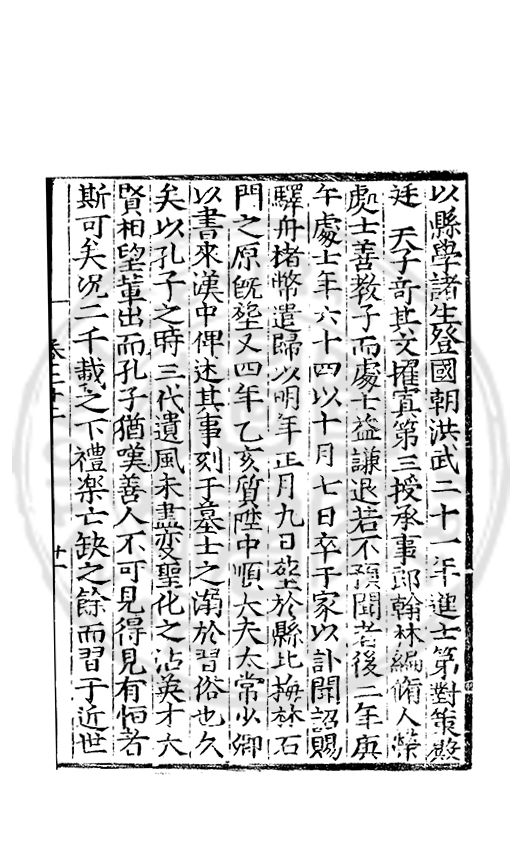 以縣學諸生登國朝洪武二十一年進士第對策殿
廷　天子奇其文擢寘第三授承事郎翰林編脩人榮
處士善教子而處士益謙退若不預聞者後二年庚
午處士年六十四以十月七日卒于家以訃聞詔賜
驛舟楮幣遣歸以明年正月九日塟於縣北梅林石
門之原旣塟又四年乙亥質陞中順大夫太常少卿
以書來漢中俾述其事刻于墓士之溺於習俗也久
矣以孔子之時三代遺風未盡變聖化之沾英才大
賢相望軰出而孔子猶嘆善人不可見得見有恒者
斯可矣況二千載之下禮樂亡缺之餘而習于近世
卷之廿二
十一